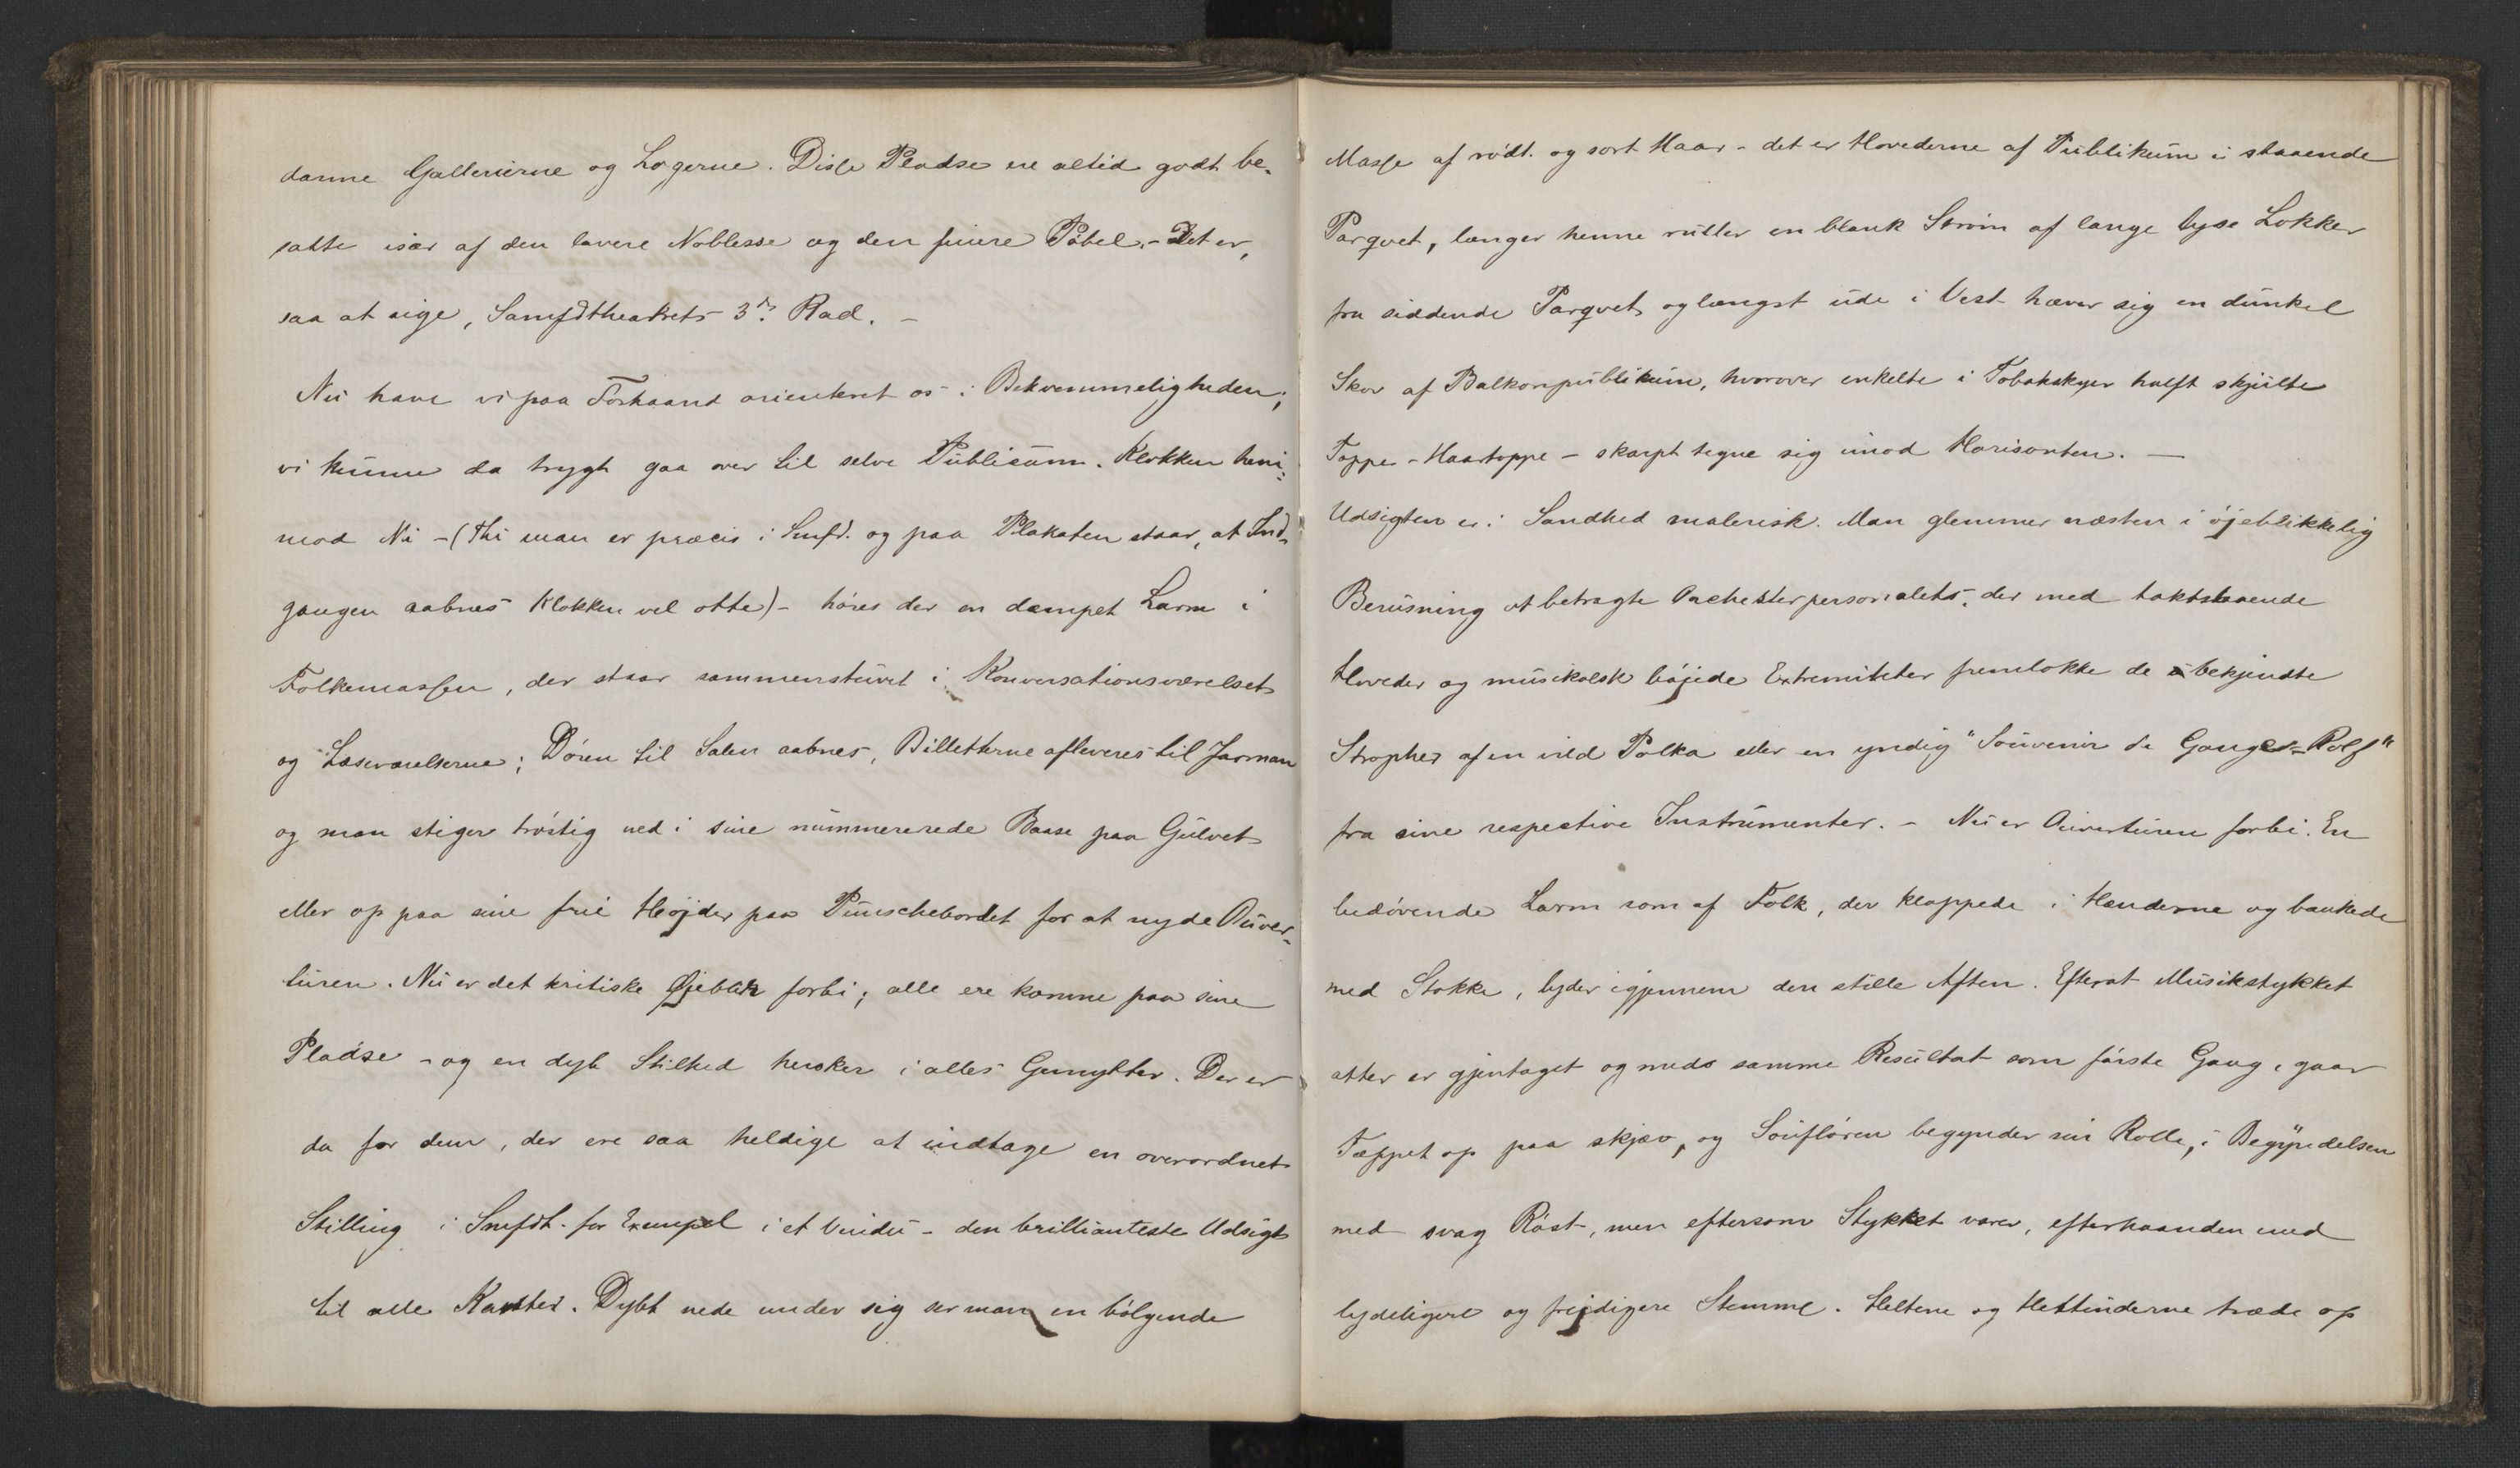 danne Gallerierne og Logerne. Disse Pladse ere altid godt be-
satte især af den lavere Noblesse og den finere Pöbel. - Det er,
saa at sige, Samfdtheatrets 3die Rad. -
Nu have vi paa Forhaand orienteret os i Bekvemmeligheden;
vi kunne da trygt gaa over til selve Publicum. Klokken heni-
mod Ni - (thi man er præcis i Smfd. og paa Plakaten staar, at Ind-
gangen aabnes Klokken vel otte) - höres der en dæmpet Larm i
Folkemassen, der staar sammenstuvet i Konversationsværelset
og Læseværelserne; Dören til Salen aabnes, Billetterne afleveres til Jarman
og man stiger tröstig ned i sine nummererede Baase paa Gulvet
eller op paa sine frie Höjder paa Punschebordet for at nyde Ouver-
turen. Nu er det kritiske Øjeblik forbi; alle ere komne paa sine
Pladse - og en dyb Stilhed hersker i alles Gemytter. Der er
da for dem, der ere saa heldige at indtage en overordnet
Stilling i Smfdt. for Exempel i et Vindu - den brillianteste Udsigt
til alle Kanter. Dybt nede under sig ser man en bölgende
Masse af rödt og sort Haar - det er Hovederne af Publikum i staaende
Parqvet, længer henne ruller en blank Ström af lange lyse Lokker
fra siddende Parqvet og længst ude i Vest hæver sig en dunkel
Skov af Balkonpublikum, hvorover enkelte i Tobakskyer halft skjulte
Toppe - Haartoppe - skarpt tegne sig imod Horisonten. -
Udsigten er i Sandhed malerisk. Man glemmer næsten i öjeblikkelig
Berusning at betragte Orchesterpersonalet, der med taktslaaende
Hoveder og musikalsk böjede Extremiteter fremlokke de bekjendte
Stropher af en vild Polka eller en yndig "Souvenir de Ganger-Rolf"
fra sine respective Instrumenter. - Nu er Ouverturen forbi. En
bedövende Larm som af Folk, der klappede i Hænderne og bankede
med Stokke, lyder igjennem den stille Aften. Efterat Musikstykket
atter er gjentaget og med samme Resultat som förste Gang, gaar
Tæppet op paa skjæv, og Soufflören begynder sin Rolle, i Begyndelsen
med svag Röst, men eftersom Stykket varer, efterhaanden med
lydeligere og frejdigere Stemme. Heltene og Heltinderne træde op